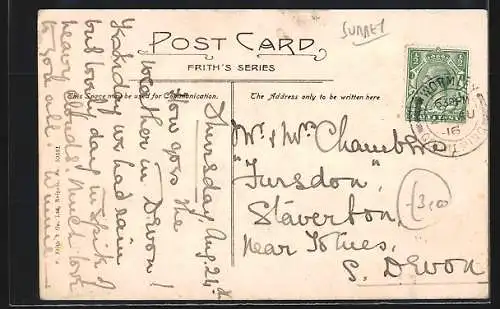 SURREY
POST CARD.
FRITH'S SERIES
This Space may be used for Communication.
The Address only to be written here
Thursday Aug. 24th
How goes the
weather in Devon!
Yesterday we had rain
but lovely day in spite of
heavy clouds. Much love
to you all. Winnie
NORMANDY
AU
16
Mr & Mrs Chambers
"Fursdon"
Staverton,
near Totnes,
S. Devon
£3.00